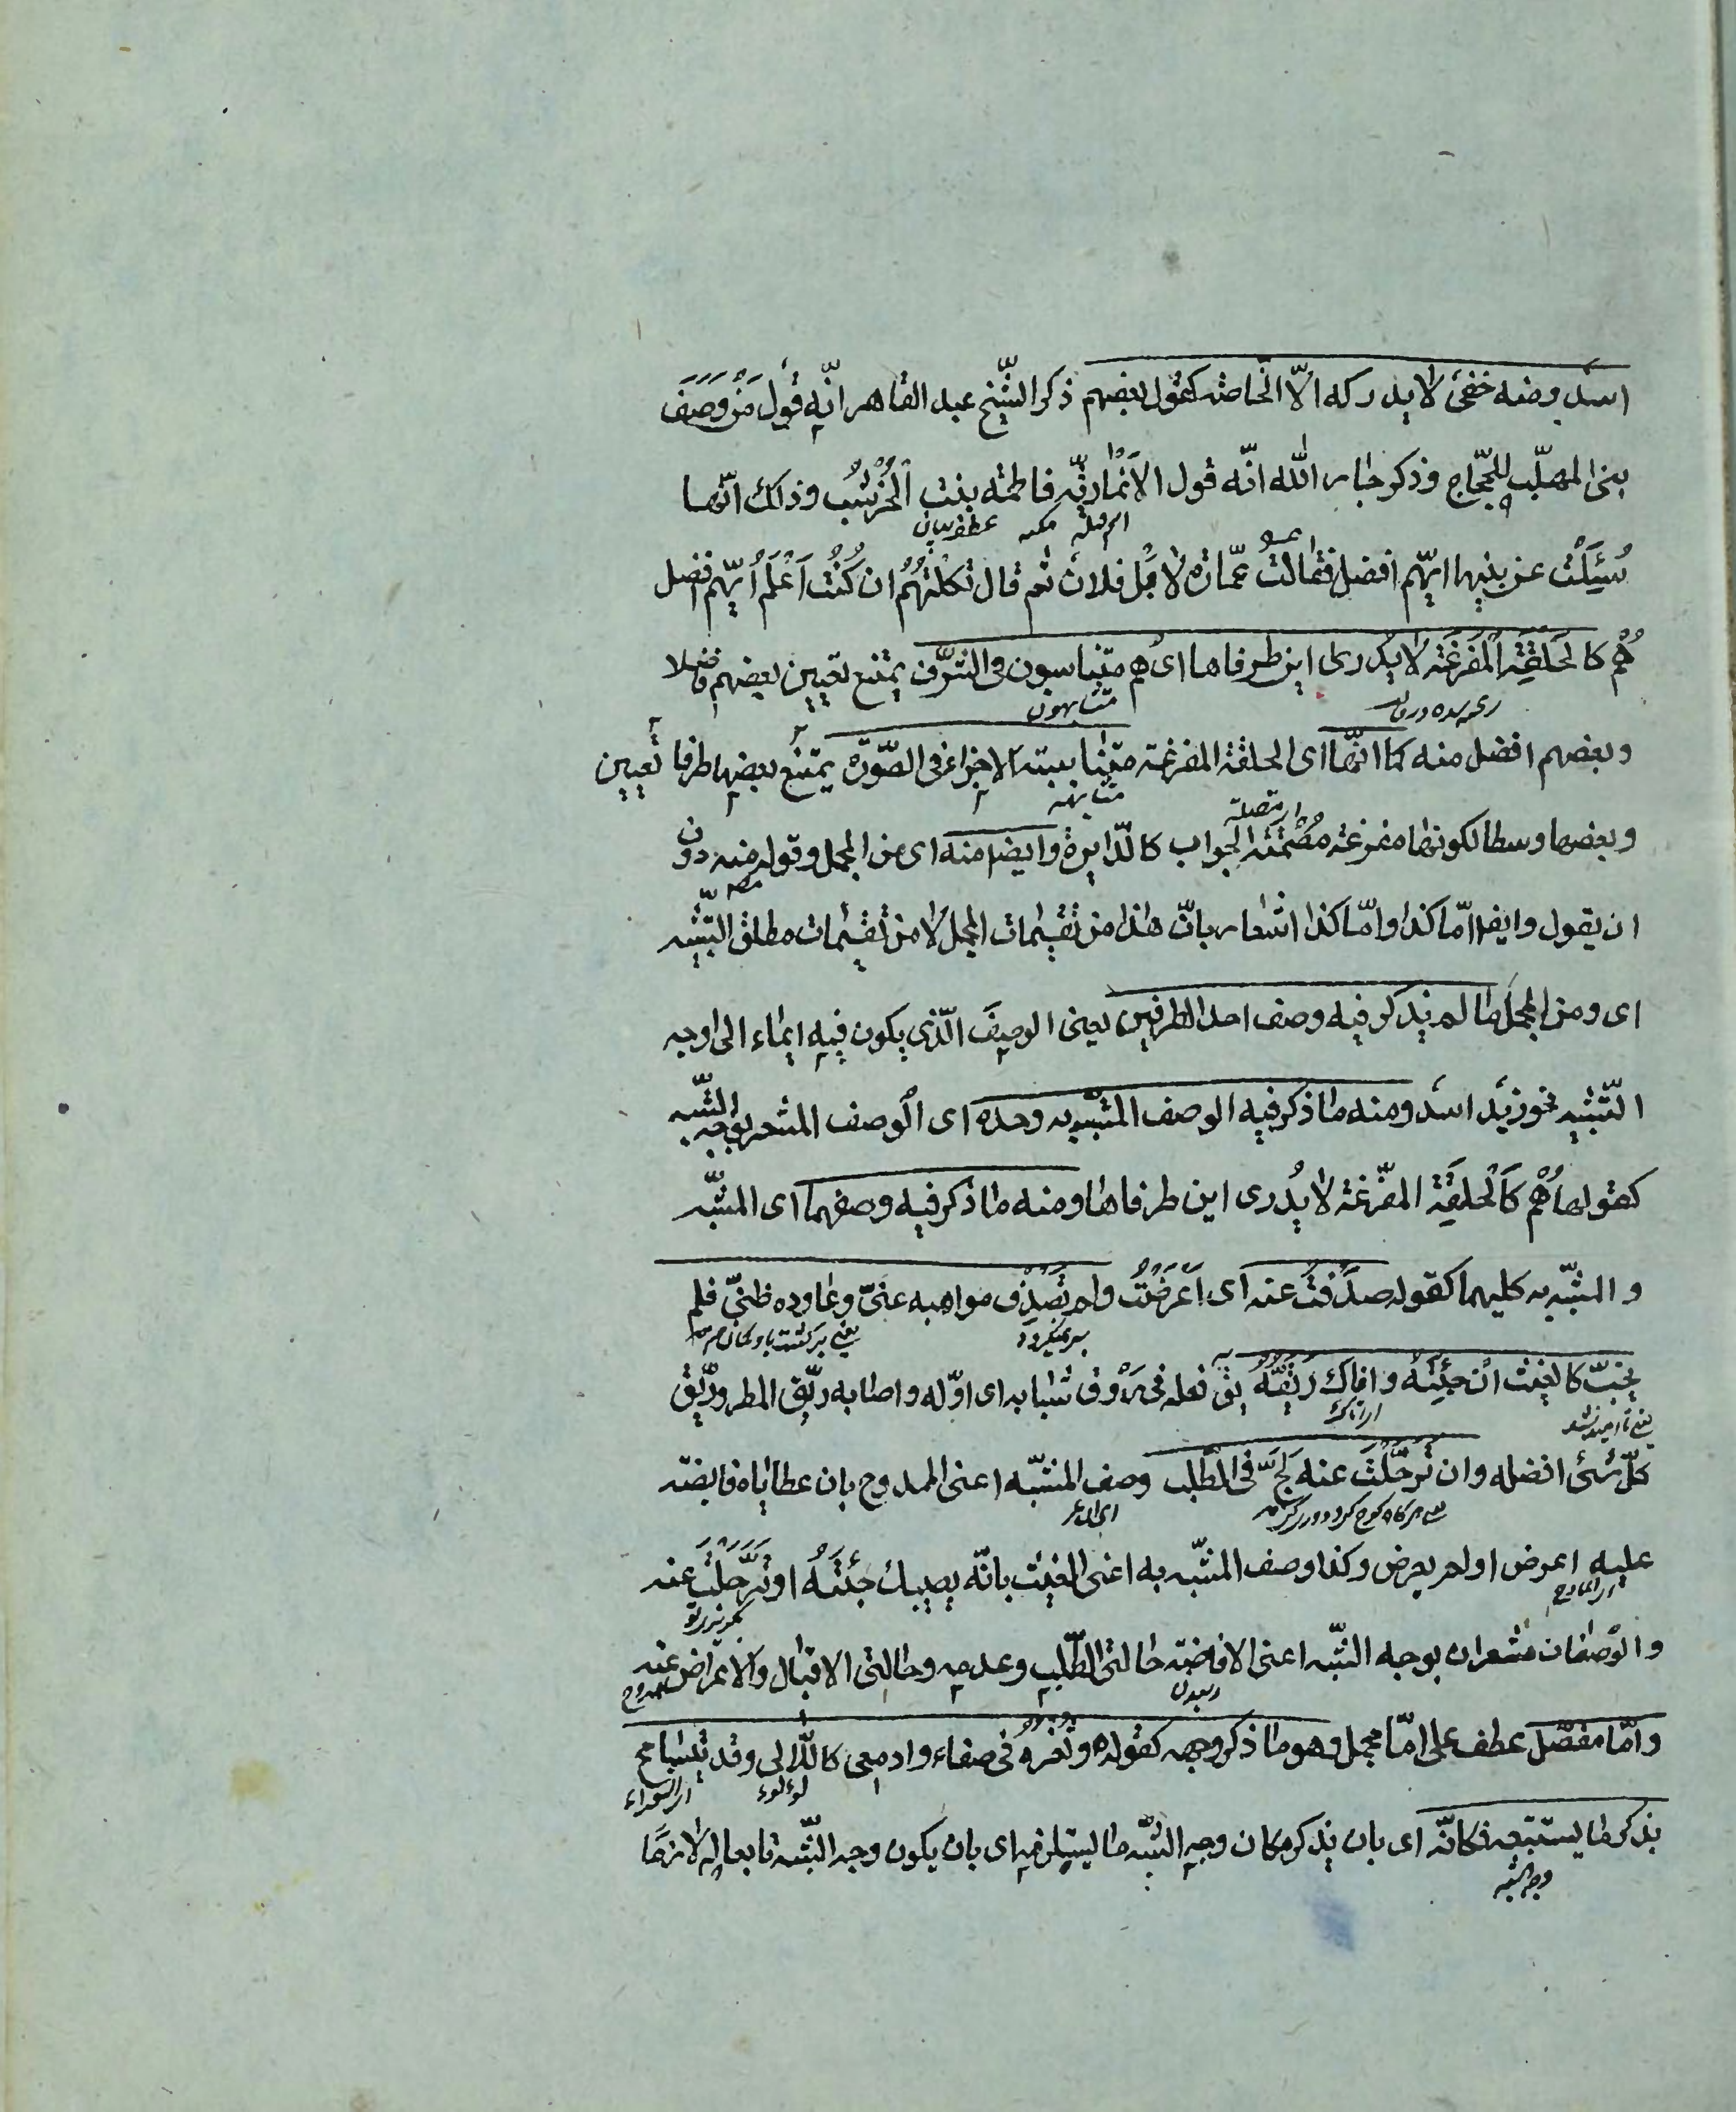 اسد ومنه خفىّ لا يدركه الّا الخاصّة كقول بعضهم ذكر الشّيخ عبد القاهر انّه قول مَنْ وَصَفَ
بنى المهلّب للحجّاج وذكر جار اللّه انّه قول الاَنْماريّة فاطمة بنت الخُرْشُب وذلك انّها
سُئِلَتْ عن بنيها ايّهم افضل فقالت عمّارة لا بل فلان ثم قال ثكلتُهُم ان كُنْتُ اَعْلَمُ اَيّهم افضل
هُمْ كالحَلقَةِ المُفرَغَة لا يُدرى اين طرفاها اى هم متناسبون فى الشّرف يمتنع تعيين بعضهم فاضلا
متشابهون
وبعضهم افضل منه كما انّها اى الحلقة المفرغة متناسبة الاجزاء فى الصّورة يمتنع بعضها طرفا تعيين
متشابهة
وبعضها وسطا لكونها مفرغة مُصْمَتَة الجوانب كالدّايرة وايضا منه اى من المجمل وقوله منه دون
ان يقول وايضا امّا كذا وامّا كذا اشعار بانّ هذا من تقسيمات المجمل لا من تقسيمات مطلق التّشبيه
اى ومن المجمل ما لم يذكر فيه وصف احد الطّرفين يعنى الوصف الّذى يكون فيه ايماء الى وجه
التّشبيه نحو زيد اسد ومنه ما ذكر فيه الوصف المشبّه به وحده اى الوصف المشعر بوجه الشّبه
كقولها هُمْ كَالحَلقَةِ المفرغة لا يُدرى اين طرفاها ومنه ما ذكر فيه وصفهما اى المشبّه
و المشبّه به كليهما كقوله صَدَفْتُ عنه اى اَعْرَضْتُ ولم تَصْدِف مواهبه عنّى وعاوده ظنّى فلم
يخب كالغيث ان جئتَه وافاك رَيّقُه يق فعله فى رَوْق شبابه اى اوّله واصابه ريّق المطر وريّق
كلّ شىء افضله وان تَرَحَّلْتَ عنه لَجَّ فى الطّلب وصف المشبّه اعنى الممدوح بان عطاياه فايضة
عليه اعرض او لم يعرض وكذا وصف المشبّه به اعنى الغيث بانّه يصيبك جئتَهُ او تَرَحَّلْتَ عنه
والوصفان مشعران بوجه الشّبه اعنى الافاضة حالتى الطّلب وعدمه وحالتى الاقبال والاعراض عنه
وامّا مفصّل عطف على امّا مجمل وهو ما ذكر وجهه كقوله وثغره فى صفاء وادمعى كاللّآلى وقد يتسامح
بذكر ما يستتبعه فكانّه اى بان يذكر مكان وجه الشّبه ما يستلزمه اى بان يكون وجه الشّبه تابعا له لازما
وجه الشبه